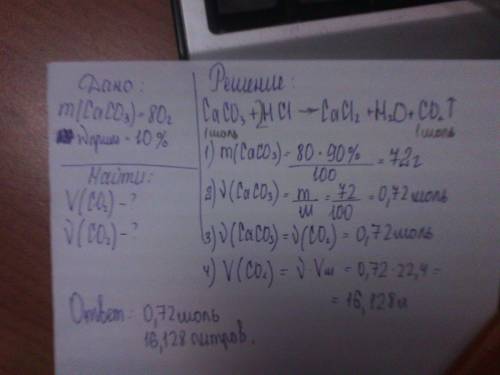 Дано:
m(CaCO₃)=80г
Wприм=10%
Найти:
V(CO₂)-?
ν(CO₂)-?
Решение:
CaCO₃+2HCl→CaCl₂+H₂O+CO₂↑
1моль 1моль
1) m(CaCO₃)=80·90%/100=72г
2) ν(CaCO₃)=m/M=72/100=0,72моль
3) ν(CaCO₃)=ν(CO₂)=0,72моль
4) V(CO₂)=ν·Vm=0,72·22,4=
=16,128л
Ответ: 0,72моль
16,128литров.